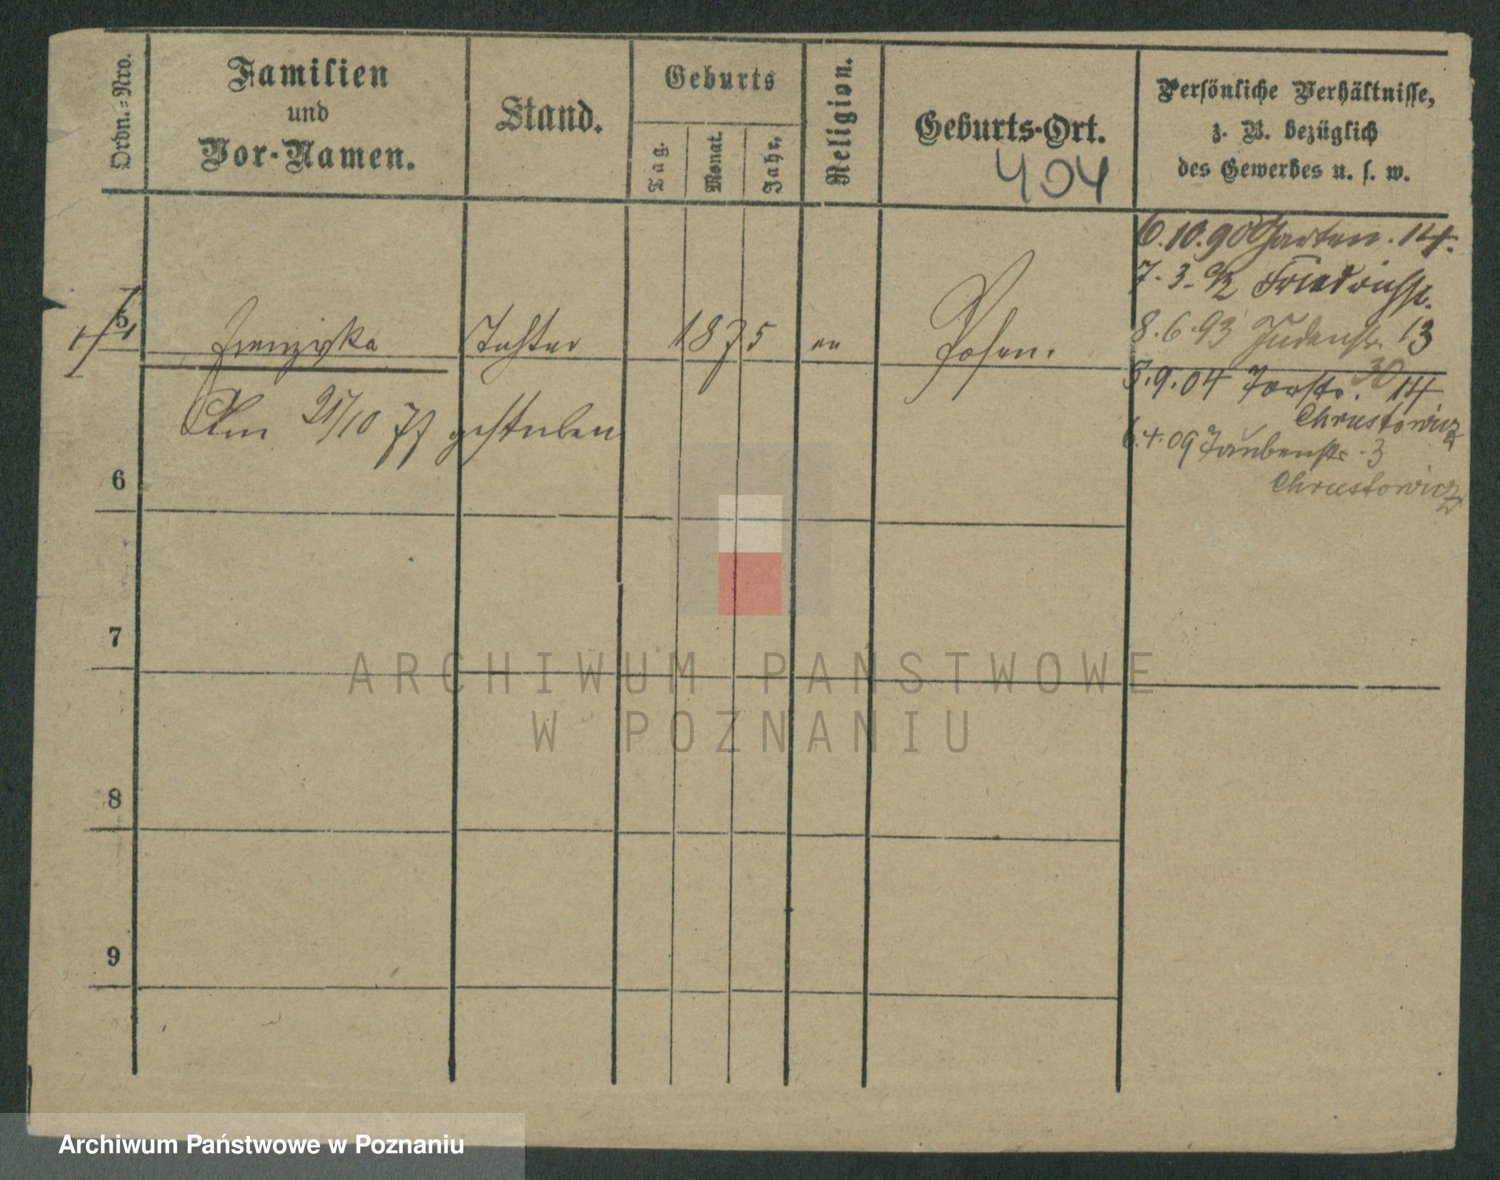 Ordn.-Nro.
Familien
und
Vor-Namen.
Stand.
Geburts
Tag.
Monat.
Jahr.
Religion.
Geburts-Ort.
Persönliche Verhältnisse,
z. B. bezüglich
des Gewerbes u. s. w.
404
6.10.90 Garten. 14.
7.3.92 Friedrichstr.
8.6.93 Judenstr. 13
30
8.9.04 Torstr. 14
Chrustowicz
6.4.09 Taubenstr. 3
Chrustowicz
5
Franziska Tochter 1875 Posen.
Am 21/10 77 gestorben
6
7
8
9
ARCHIWUM PAŃSTWOWE
W POZNANIU
Archiwum Państwowe w Poznaniu